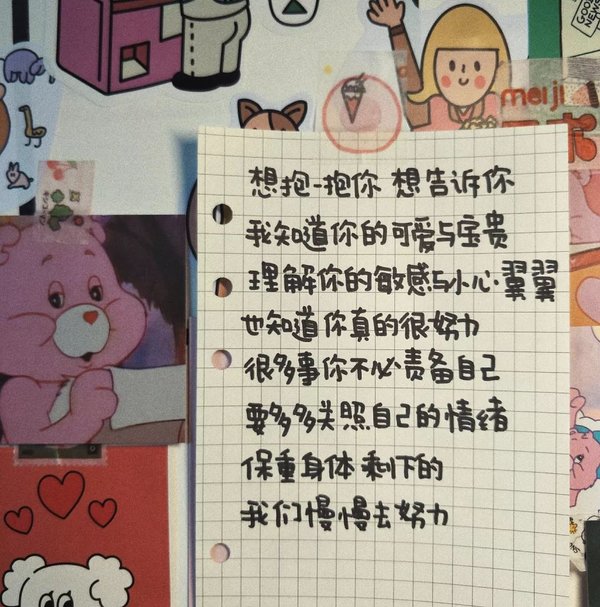 GOOD
NEWS
meiji
想抱一抱你 想告诉你
我知道你的可爱与宝贵
理解你的敏感与小心翼翼
也知道你真的很努力
很多事你不必责备自己
要多多关照自己的情绪
保重身体 剩下的
我们慢慢去努力